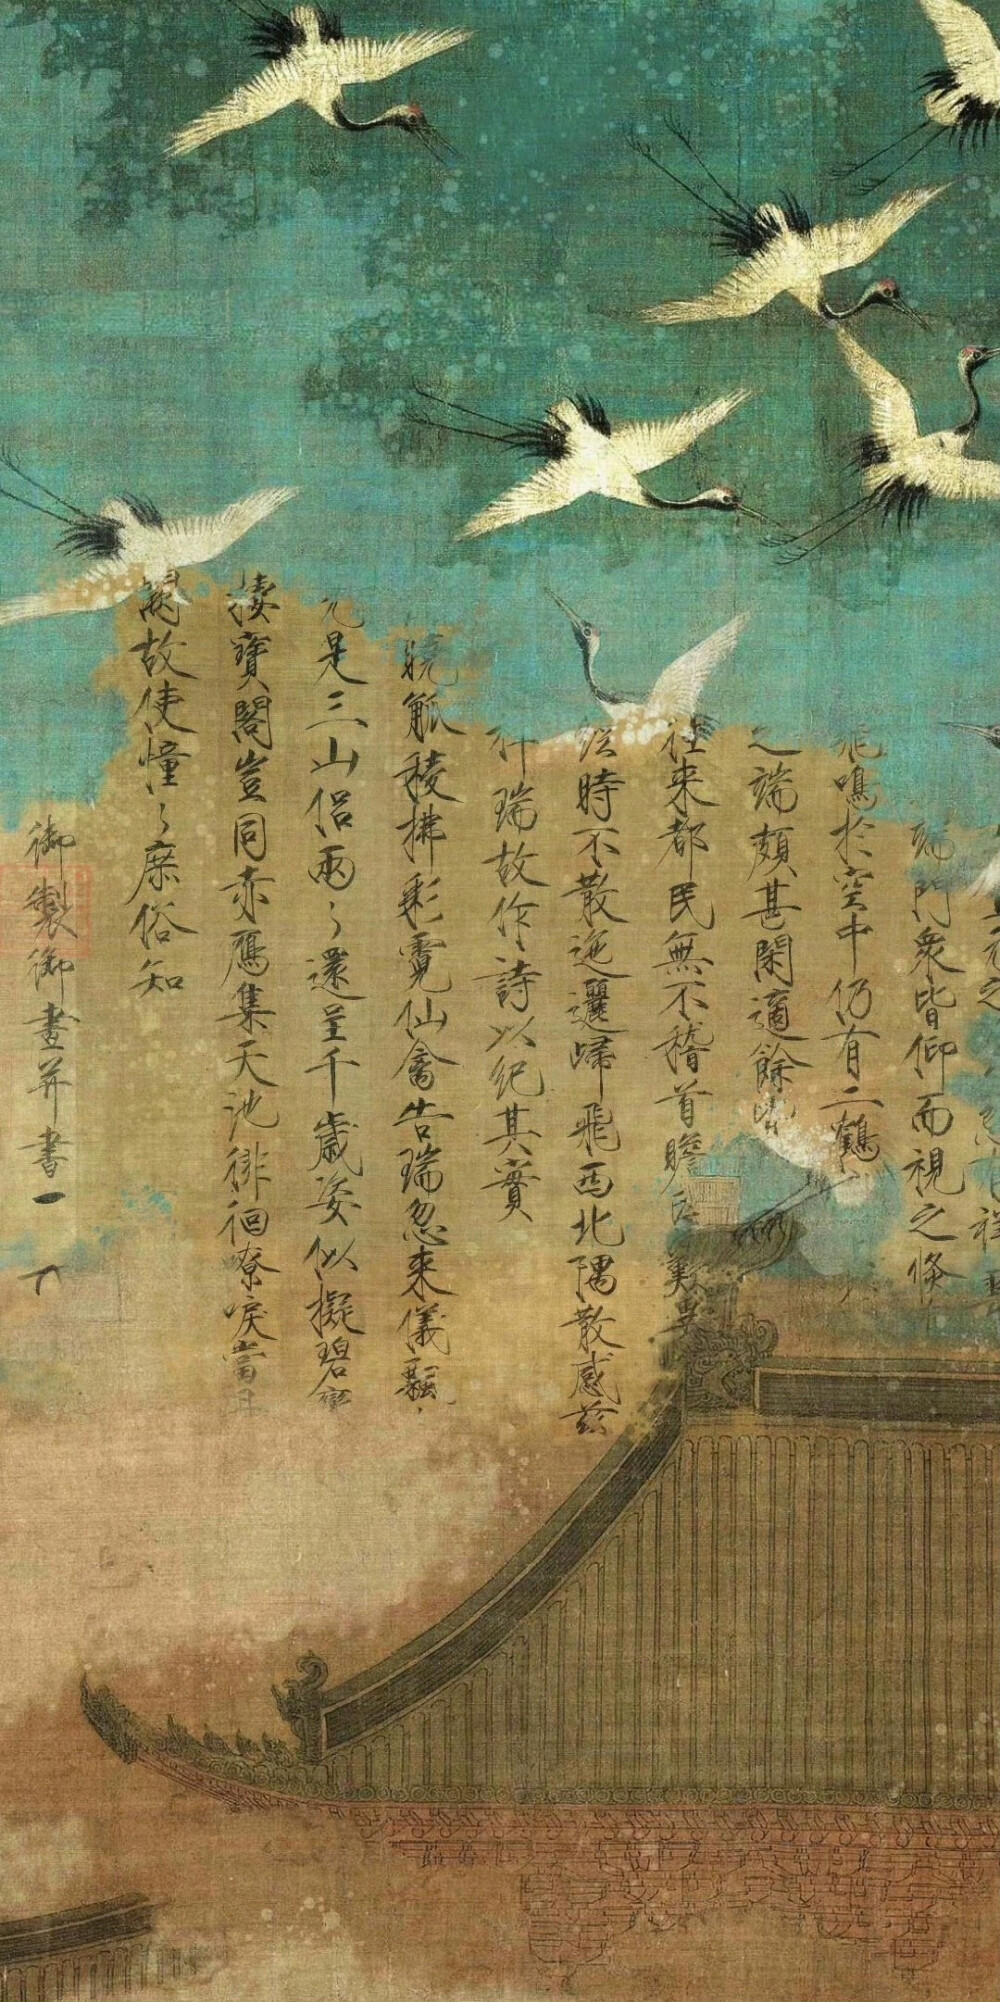 元之
端門衆皆仰而視之倏
飛鳴於空中仍有二鶴
之端頗甚閑適餘
往来都民無不稽首瞻
經時不散迤邐歸飛西北隅散感茲
祥瑞故作詩以紀其實
曉觚稜拂彩霓仙禽告瑞忽来儀飄
元是三山侶兩〻還呈千歲姿似擬碧鸞
棲寶閣豈同赤鴈集天池徘徊嘹唳當丹
闕故使憧〻庶俗知
御製御畫并書